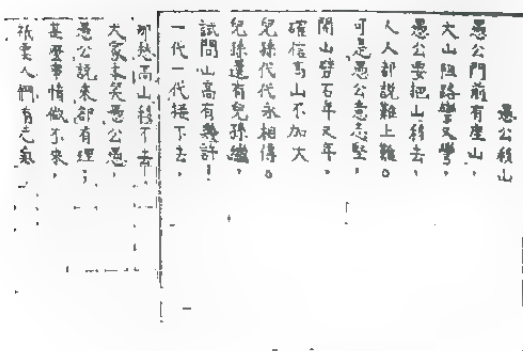 愚公移山
愚公門前有座山,
大山阻路彎又彎,
愚公要把山移去,
人人都說難上難。
可是愚公意志堅,
開山劈石年又年,
確信高山不加大
兒孫代代永相傳。
兒孫還有兒孫繼,
試問山高有幾許!
一代一代接下去,
那愁高山移不去.
大家未笑愚公愚,
愚公說來都有理;
甚麼事情做不來,
祇要人們有志氣